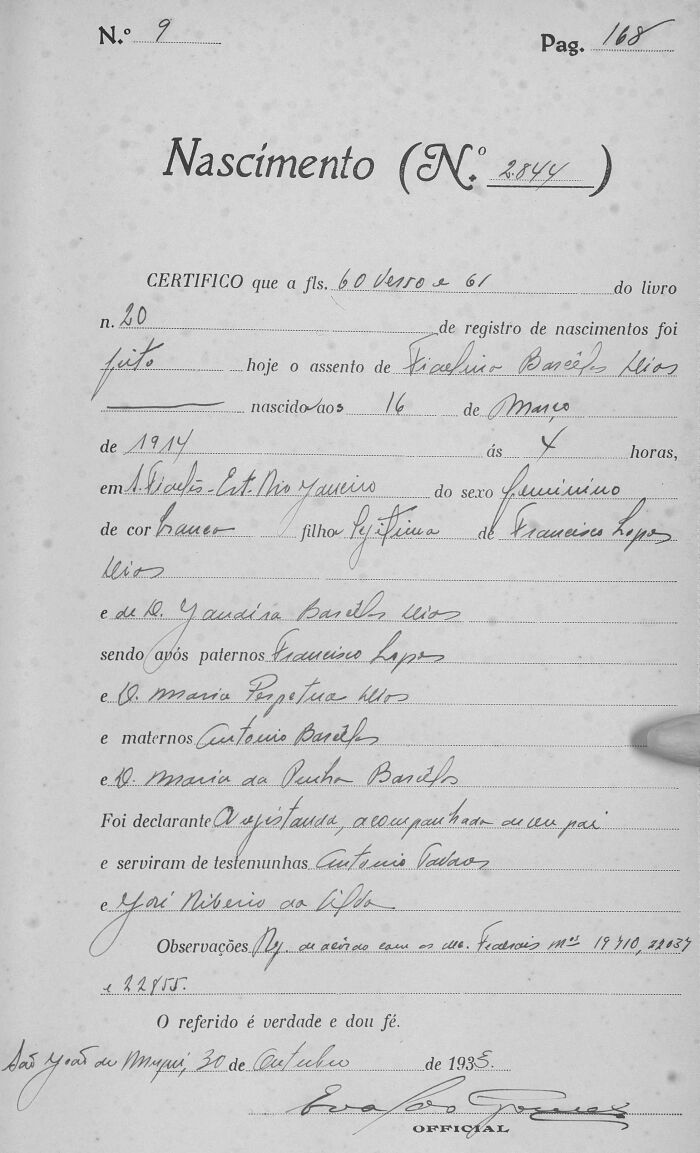 N.º 9
Pag. 168
Nascimento (N.º 2.844)
CERTIFICO que a fls. 60 verso e 61 do livro
n. 20 de registro de nascimentos foi
feito hoje o assento de Fidelina Barcélos
nascida aos 16 de Março
de 1914 ás 4 horas,
em S. Fidelis - Est. Rio Janeiro do sexo feminino
de cor branca filha legitima de Francisco Lopes
e de D. Jandira Barcélos
sendo avós paternos Francisco Lopes
e D. Maria Perpetua
e maternos Antonio Barcélos
e D. Maria da Penha Barcélos
Foi declarante A registanda, acompanhada de seu pai
e serviram de testemunhas Antonio
e José Ribeiro da Silva
Observações Reg. de acôrdo com os dec. Federais nºs 19710, 22037
e 22855.
O referido é verdade e dou fé.
São João do Muqui, 30 de Outubro de 1935.
OFFICIAL